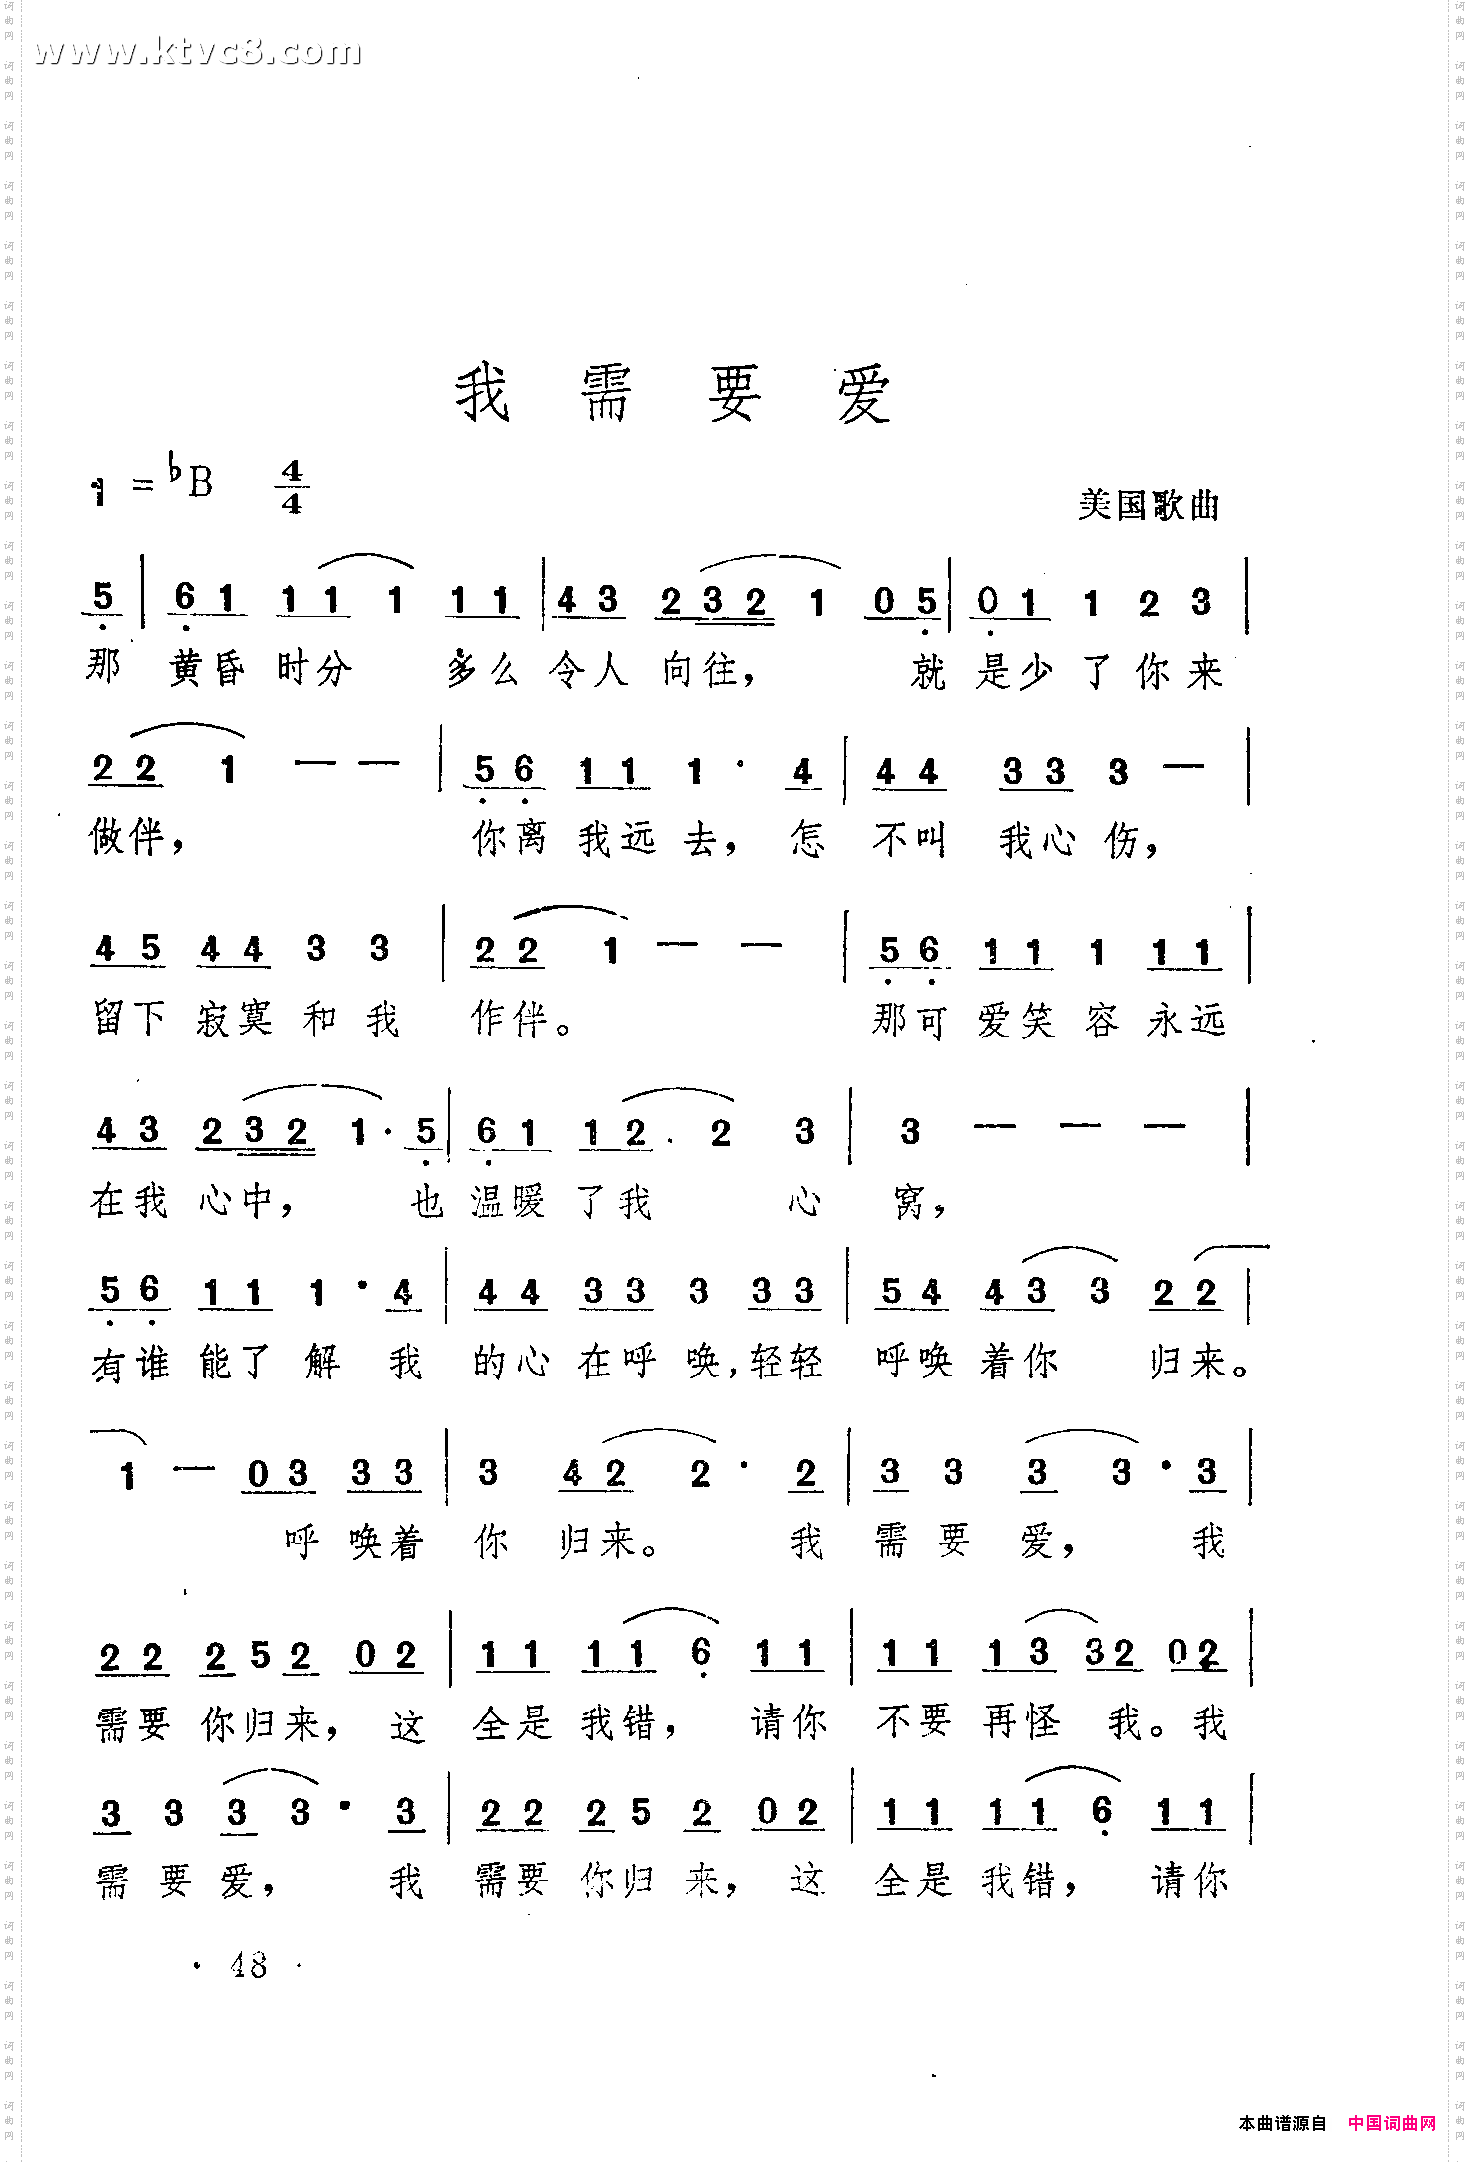 www.ktvc8.com
我需要爱
1=♭B 4/4
美国歌曲
5 | 6 1 1 1 1 1 1 | 4 3 2 3 2 1 0 5 | 0 1 1 2 3 |
那 黄昏 时分 多么 令人 向往， 就 是少 了 你 来
2 2 1 — — | 5 6 1 1 1 · 4 | 4 4 3 3 3 — |
做伴， 你离 我远 去， 怎 不叫 我心 伤，
4 5 4 4 3 3 | 2 2 1 — — | 5 6 1 1 1 1 1 |
留下 寂寞 和 我 作伴。 那可 爱笑 容 永远
4 3 2 3 2 1 · 5 | 6 1 1 2 . 2 3 | 3 — — — |
在我 心中， 也 温暖 了我 心 窝，
5 6 1 1 1 · 4 | 4 4 3 3 3 3 3 | 5 4 4 3 3 2 2 |
有谁 能了 解 我 的心 在呼 唤，轻轻 呼唤 着你 归来。
1 — 0 3 3 3 | 3 4 2 2 · 2 | 3 3 3 3 · 3 |
呼 唤着 你 归来。 我 需 要 爱， 我
2 2 2 5 2 0 2 | 1 1 1 1 6 1 1 | 1 1 1 3 3 2 0 2 |
需要 你归来， 这 全是 我错， 请你 不要 再怪 我。我
3 3 3 3 · 3 | 2 2 2 5 2 0 2 | 1 1 1 1 6 1 1 |
需 要 爱， 我 需要 你归 来， 这 全是 我错， 请你
· 48 ·
本曲谱源自 中国词曲网